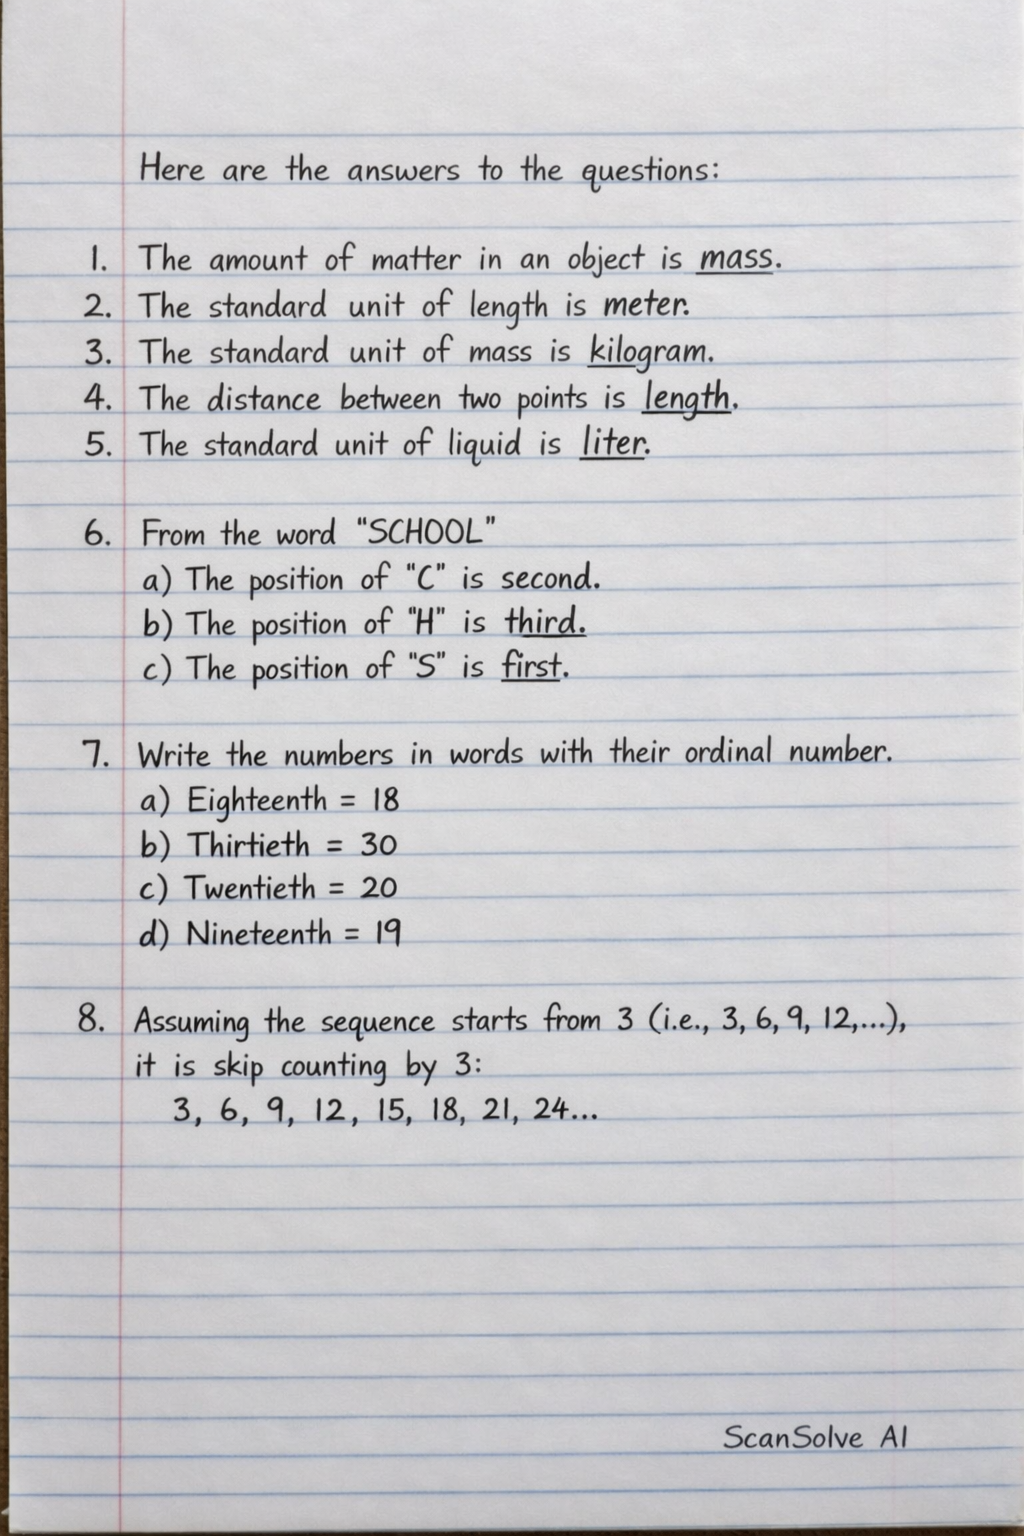 Here are the answers to the questions:
1. The amount of matter in an object is mass.
2. The standard unit of length is meter.
3. The standard unit of mass is kilogram.
4. The distance between two points is length.
5. The standard unit of liquid is liter.
6. From the word "SCHOOL"
a) The position of "C" is second.
b) The position of "H" is third.
c) The position of "S" is first.
7. Write the numbers in words with their ordinal number.
a) Eighteenth = 18
b) Thirtieth = 30
c) Twentieth = 20
d) Nineteenth = 19
8. Assuming the sequence starts from 3 (i.e., 3, 6, 9, 12,...),
it is skip counting by 3:
3, 6, 9, 12, 15, 18, 21, 24...
ScanSolve AI